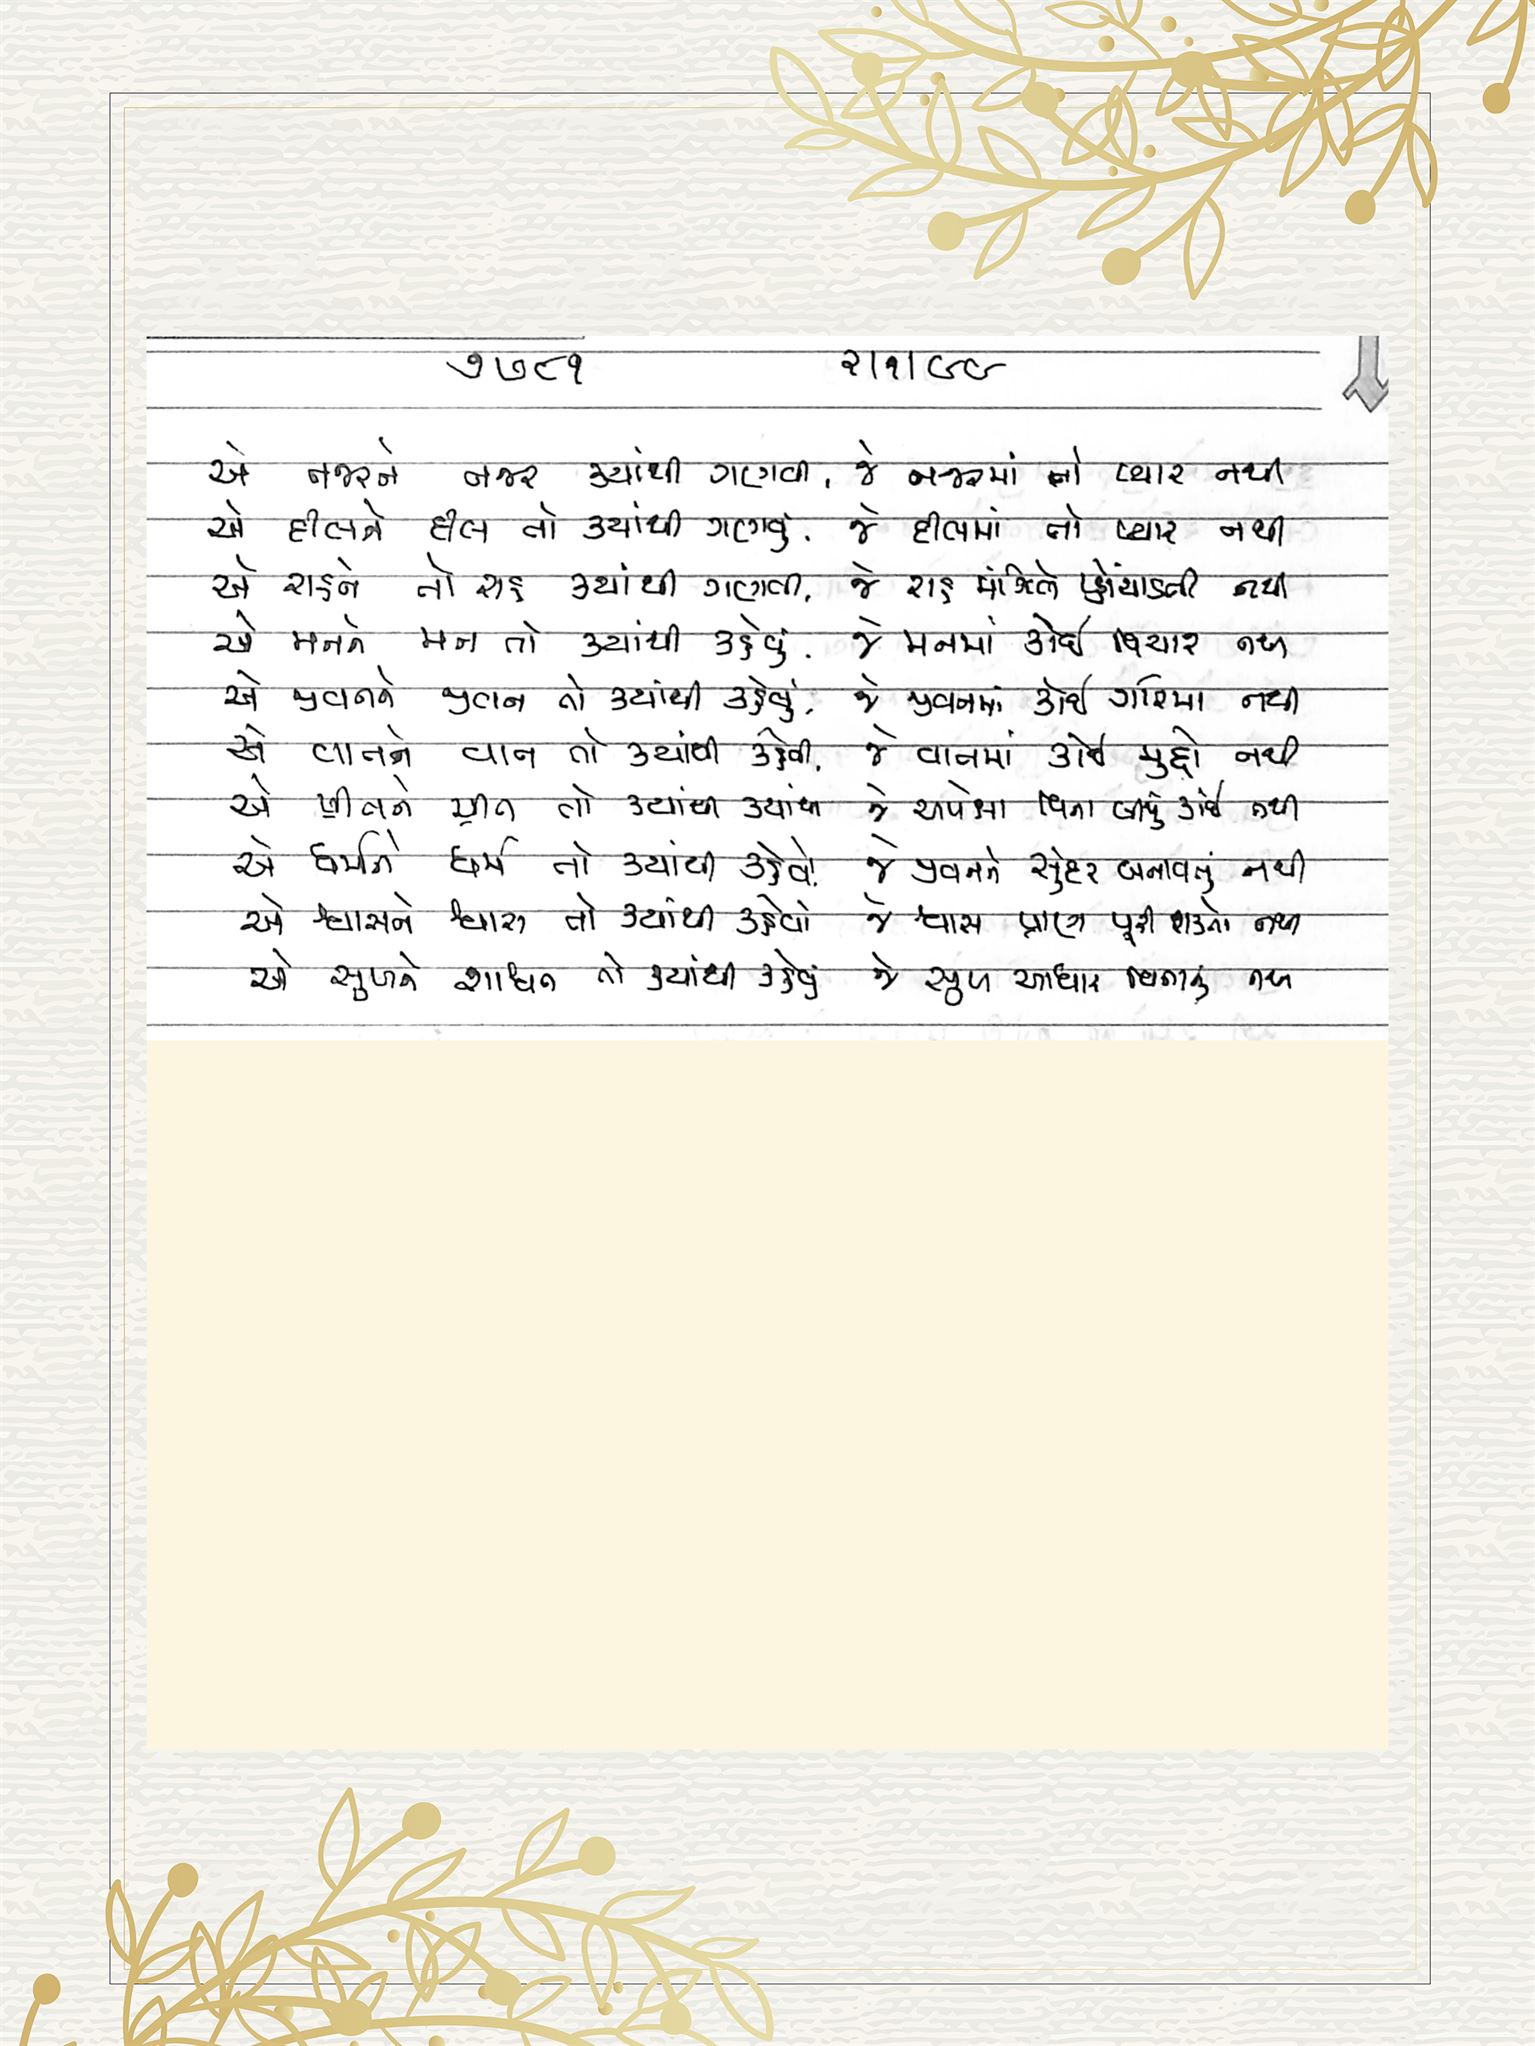 ૭૭૮૧ ૨।૧।૯૯
એ નજરને નજર ક્યાંથી ગણવી, જે નજરમાં તો પ્યાર નથી
એ દીલને દીલ તો ક્યાંથી ગણવું. જે દીલમાં તો પ્યાર નથી
એ રાહને તો રાહ ક્યાંથી ગણવી, જે રાહ મંઝિલે પ્હોંચાડતી નથી
એ મનને મન તો ક્યાંથી કહેવું. જે મનમાં કોઈ વિચાર નથી
એ જીવનને જીવન તો ક્યાંથી કહેવું, જે જીવનમાં કોઈ ગરિમા નથી
એ વાતને વાત તો ક્યાંથી કહેવી, જે વાતમાં કોઈ મુદ્દો નથી
એ પ્રીતને પ્રીત તો ક્યાંથી ક્યાંથી જે અપેક્ષા વિના બીજું કોઈ નથી
એ ધર્મને ધર્મ તો ક્યાંથી કહેવો. જે જીવનને સુંદર બનાવતું નથી
એ શ્વાસને શ્વાસ તો ક્યાંથી કહેવો જે શ્વાસ પ્રાણ પૂરી શકતો નથી
એ સુખને સાધન તો ક્યાંથી કહેવું જે સુખ આધાર વિનાનું નથી